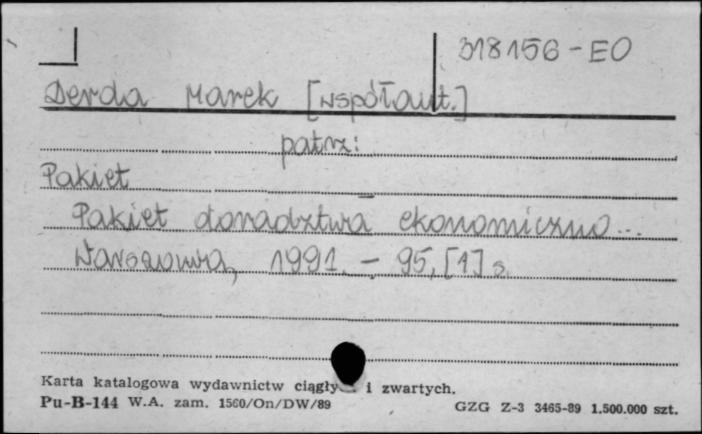 318156-EO
Derda Marek [współaut.]
patrz:
Pakiet
Pakiet doradztwa ekonomiczno...
Warszawa, 1991. - 95, [1] s.
Karta katalogowa wydawnictw ciągły i zwartych.
Pu-B-144 W.A. zam. 1560/On/DW/89 GZG Z-3 3465-89 1.500.000 szt.